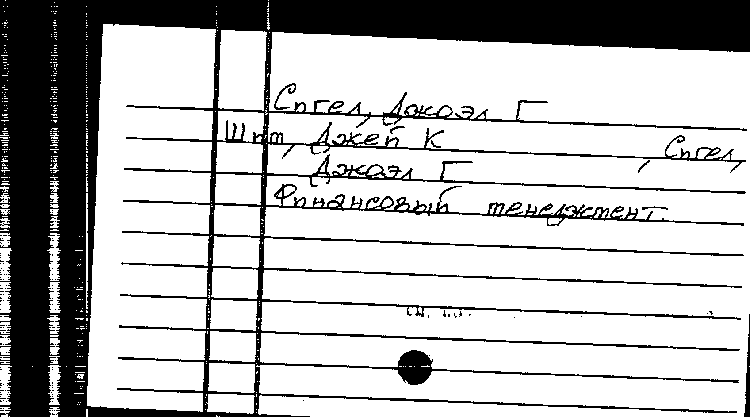 Сигел, Джоэл Г
Шим, Джей К , Сигел,
Джоэл Г
Финансовый менеджмент.